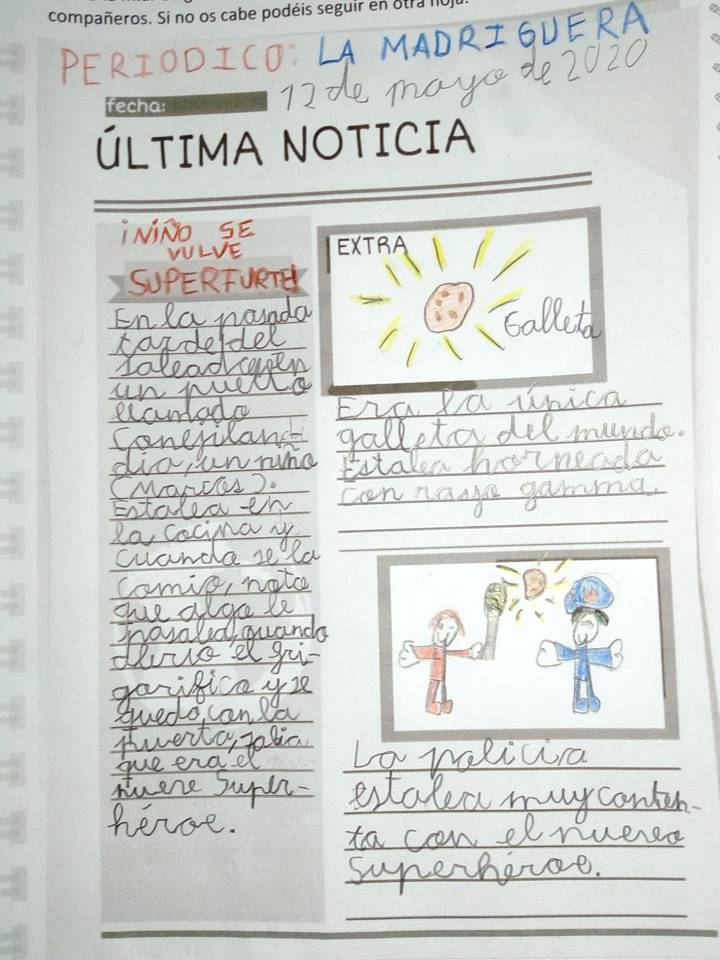 compañeros. Si no os cabe podéis seguir en otra hoja.
PERIODICO: LA MADRIGUERA
fecha: 12 de mayo de 2020
ÚLTIMA NOTICIA
¡NIÑO SE
VULVE
SUPERFURTE!
En la pasada
tarde del
en
un
llamado
Conejilan-
dia, un niño
(Marcos).
Estaba en
la cocina y
cuando se la
comio, noto
que algo le
pasaba, quando
abrio el fri-
gorifico y se
quedo con la
puerta, sabia
que era el
Super-
héroe.
EXTRA
Galleta
Era la única
galleta del mundo.
Estaba horneada
con rayo gamma.
La policiia
estaba muy conten-
ta con el nuevo
Superhéroe.